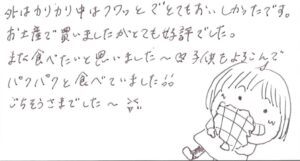 外はカリカリ中はフワッとでとてもおいしかったです。
お土産で買いましたがとても好評でした。
また食べたいと思いました〜 子供もよろこんで
パクパクと食べていました
ごちそうさまでした〜